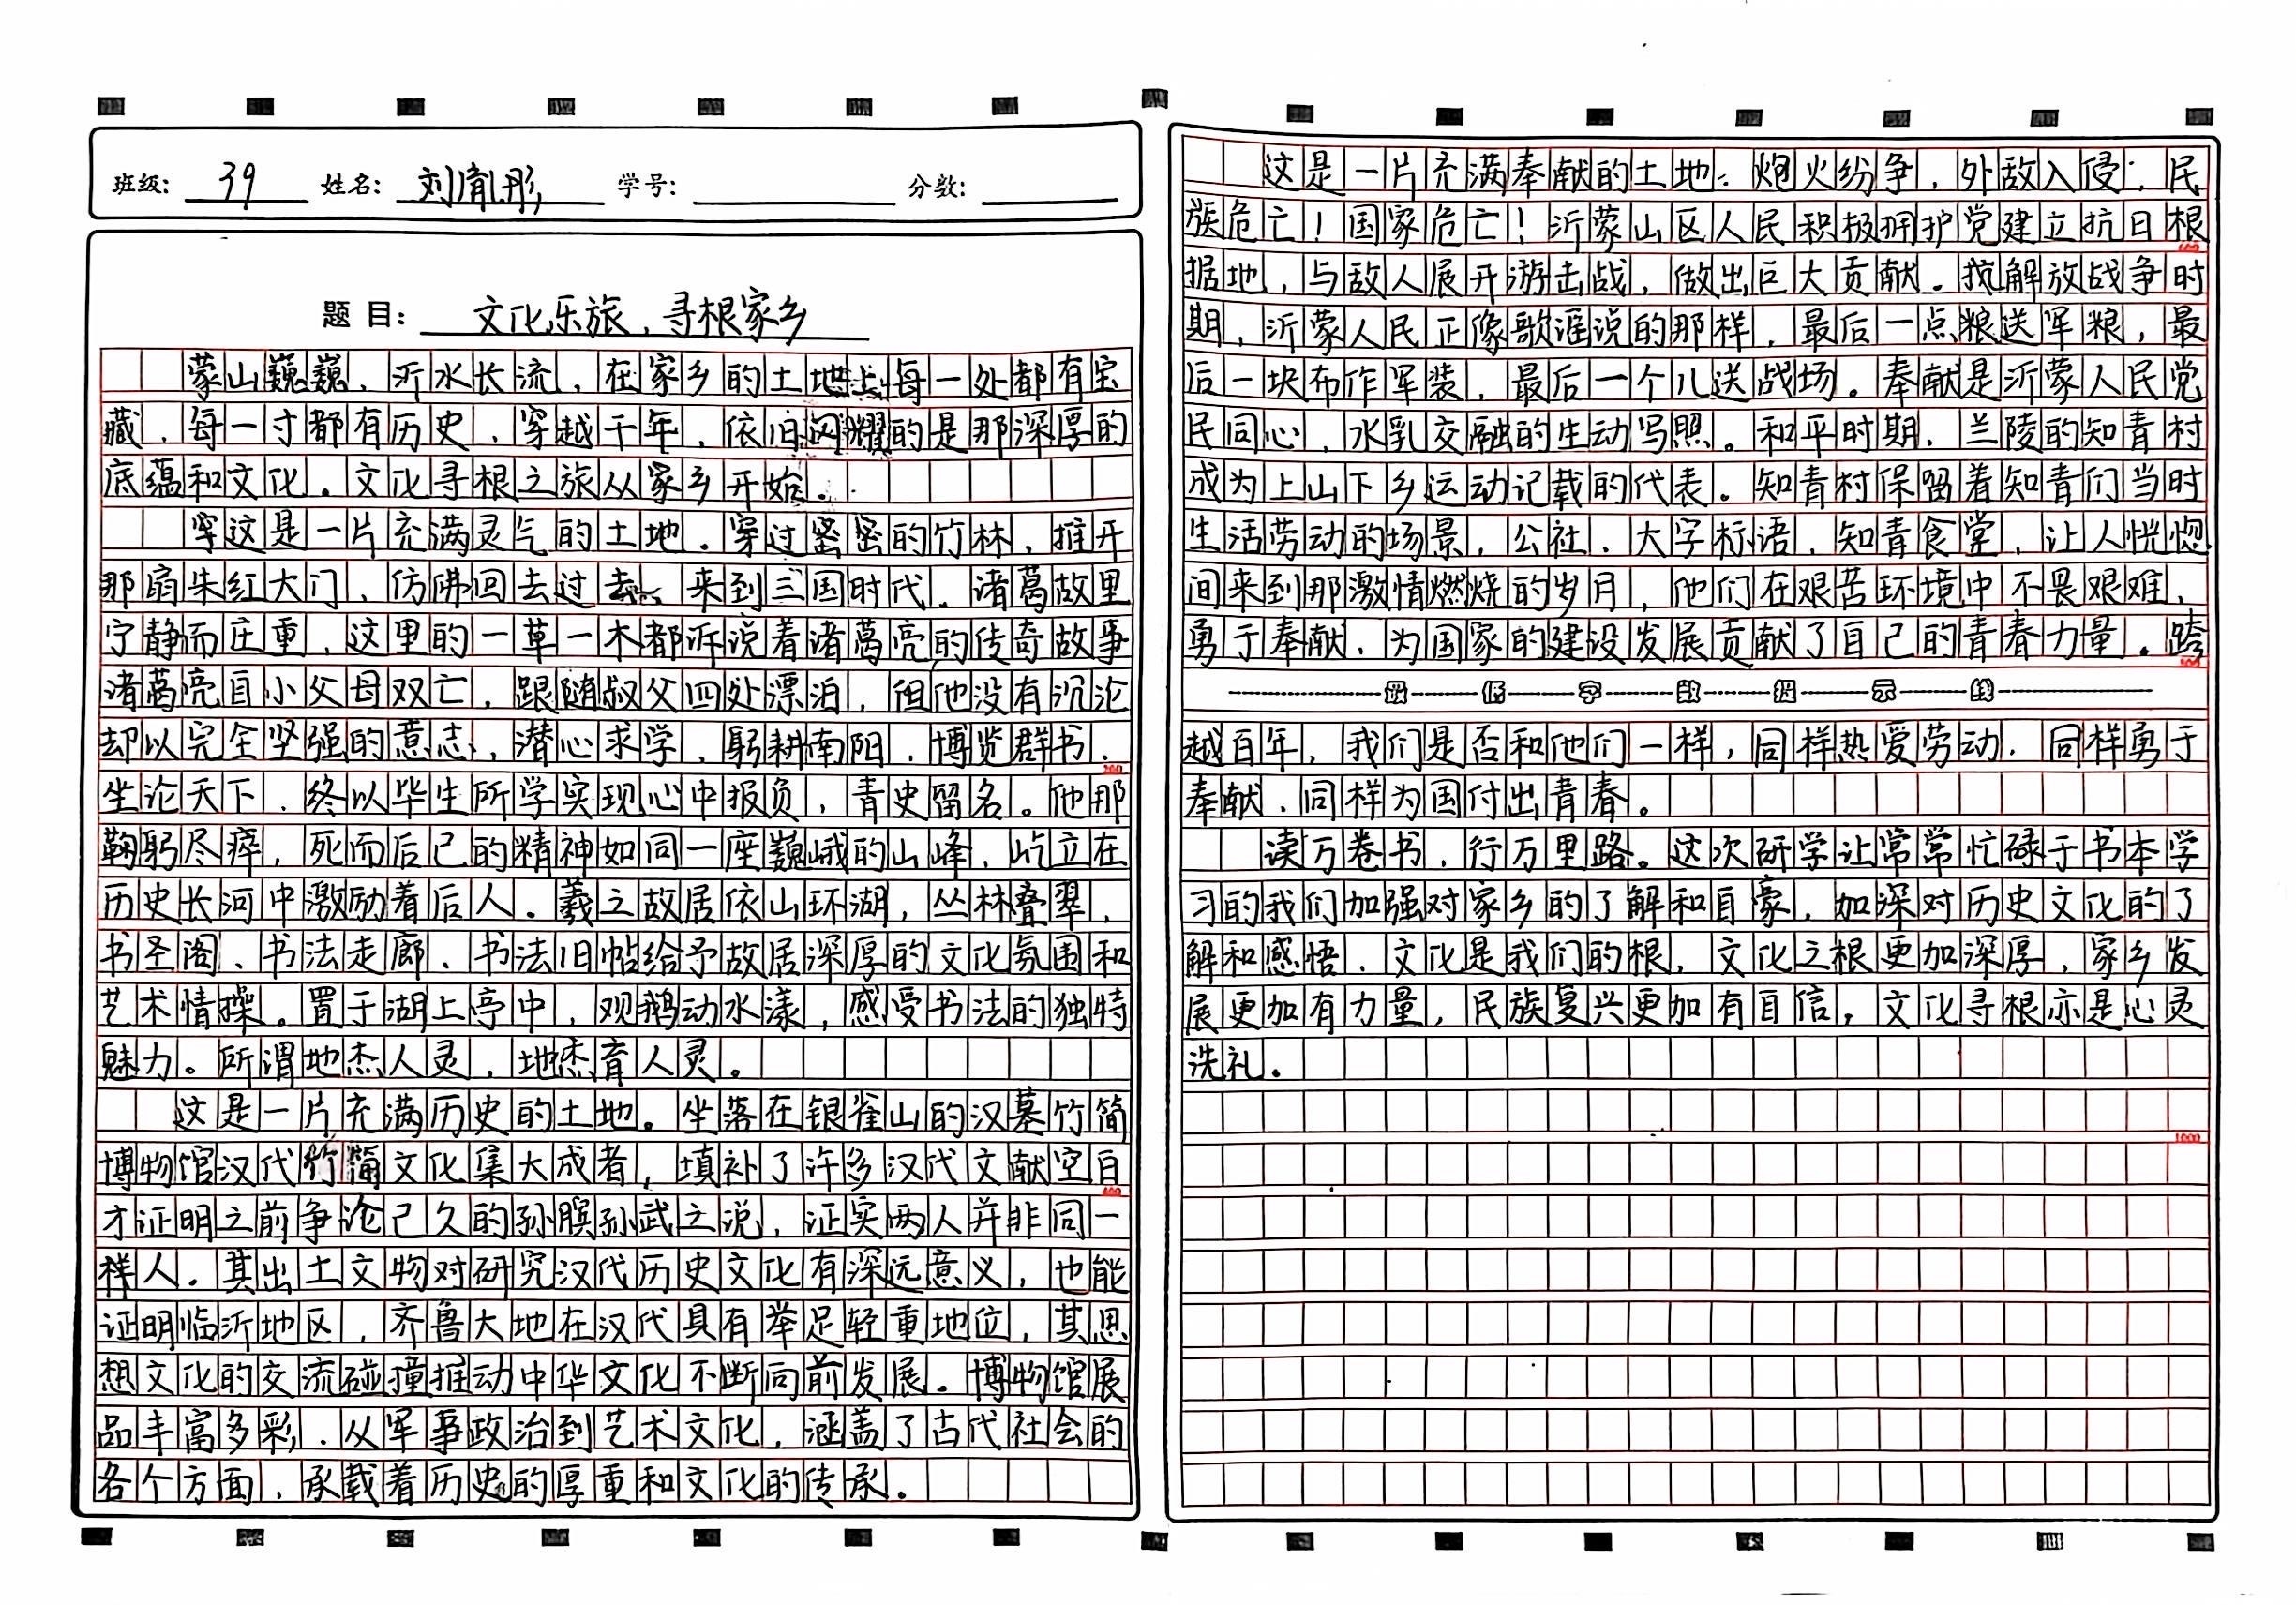 班级: 39 姓名: 刘胤彤 学号: 分数:
题目: 文化乐旅，寻根家乡
蒙山巍巍，沂水长流，在家乡的土地上每一处都有宝
藏，每一寸都有历史，穿越千年，依旧闪耀的是那深厚的
底蕴和文化。文化寻根之旅从家乡开始。
这是一片充满灵气的土地。穿过密密的竹林，推开
那扇朱红大门，仿佛回去过去，来到三国时代。诸葛故里
宁静而庄重，这里的一草一木都诉说着诸葛亮的传奇故事
诸葛亮自小父母双亡，跟随叔父四处漂泊，但他没有沉沦
却以完全坚强的意志，潜心求学，躬耕南阳，博览群书，
200
坐论天下，终以毕生所学实现心中报负，青史留名。他那
鞠躬尽瘁，死而后已的精神如同一座巍峨的山峰，屹立在
历史长河中激励着后人。羲之故居依山环湖，丛林叠翠，
书圣阁、书法走廊、书法旧帖给予故居深厚的文化氛围和
艺术情操。置于湖上亭中，观鹅动水漾，感受书法的独特
魅力。所谓地杰人灵，地杰育人灵。
这是一片充满历史的土地。坐落在银雀山的汉墓竹简
博物馆汉代竹简文化集大成者，填补了许多汉代文献空白
400
才证明之前争论已久的孙膑孙武之说，证实两人并非同一
样人。其出土文物对研究汉代历史文化有深远意义，也能
证明临沂地区，齐鲁大地在汉代具有举足轻重地位，其思
想文化的交流碰撞推动中华文化不断向前发展。博物馆展
品丰富多彩，从军事政治到艺术文化，涵盖了古代社会的
各个方面，承载着历史的厚重和文化的传承。
这是一片充满奉献的土地：炮火纷争，外敌入侵，民
族危亡！国家危亡！沂蒙山区人民积极拥护党建立抗日根
600
据地，与敌人展开游击战，做出巨大贡献。抗解放战争时
期，沂蒙人民正像歌谣说的那样，最后一点粮送军粮，最
后一块布作军装，最后一个儿送战场。奉献是沂蒙人民党
民同心，水乳交融的生动写照。和平时期，兰陵的知青村
成为上山下乡运动记载的代表。知青村保留着知青们当时
生活劳动的场景，公社、大字标语，知青食堂，让人恍惚
间来到那激情燃烧的岁月，他们在艰苦环境中不畏艰难，
勇于奉献，为国家的建设发展贡献了自己的青春力量。跨
800
最低字数提示线
越百年，我们是否和他们一样，同样热爱劳动，同样勇于
奉献、同样为国付出青春。
读万卷书，行万里路。这次研学让常常忙碌于书本学
习的我们加强对家乡的了解和自豪，加深对历史文化的了
解和感悟，文化是我们的根，文化之根更加深厚，家乡发
展更加有力量，民族复兴更加有自信，文化寻根亦是心灵
洗礼。
1000